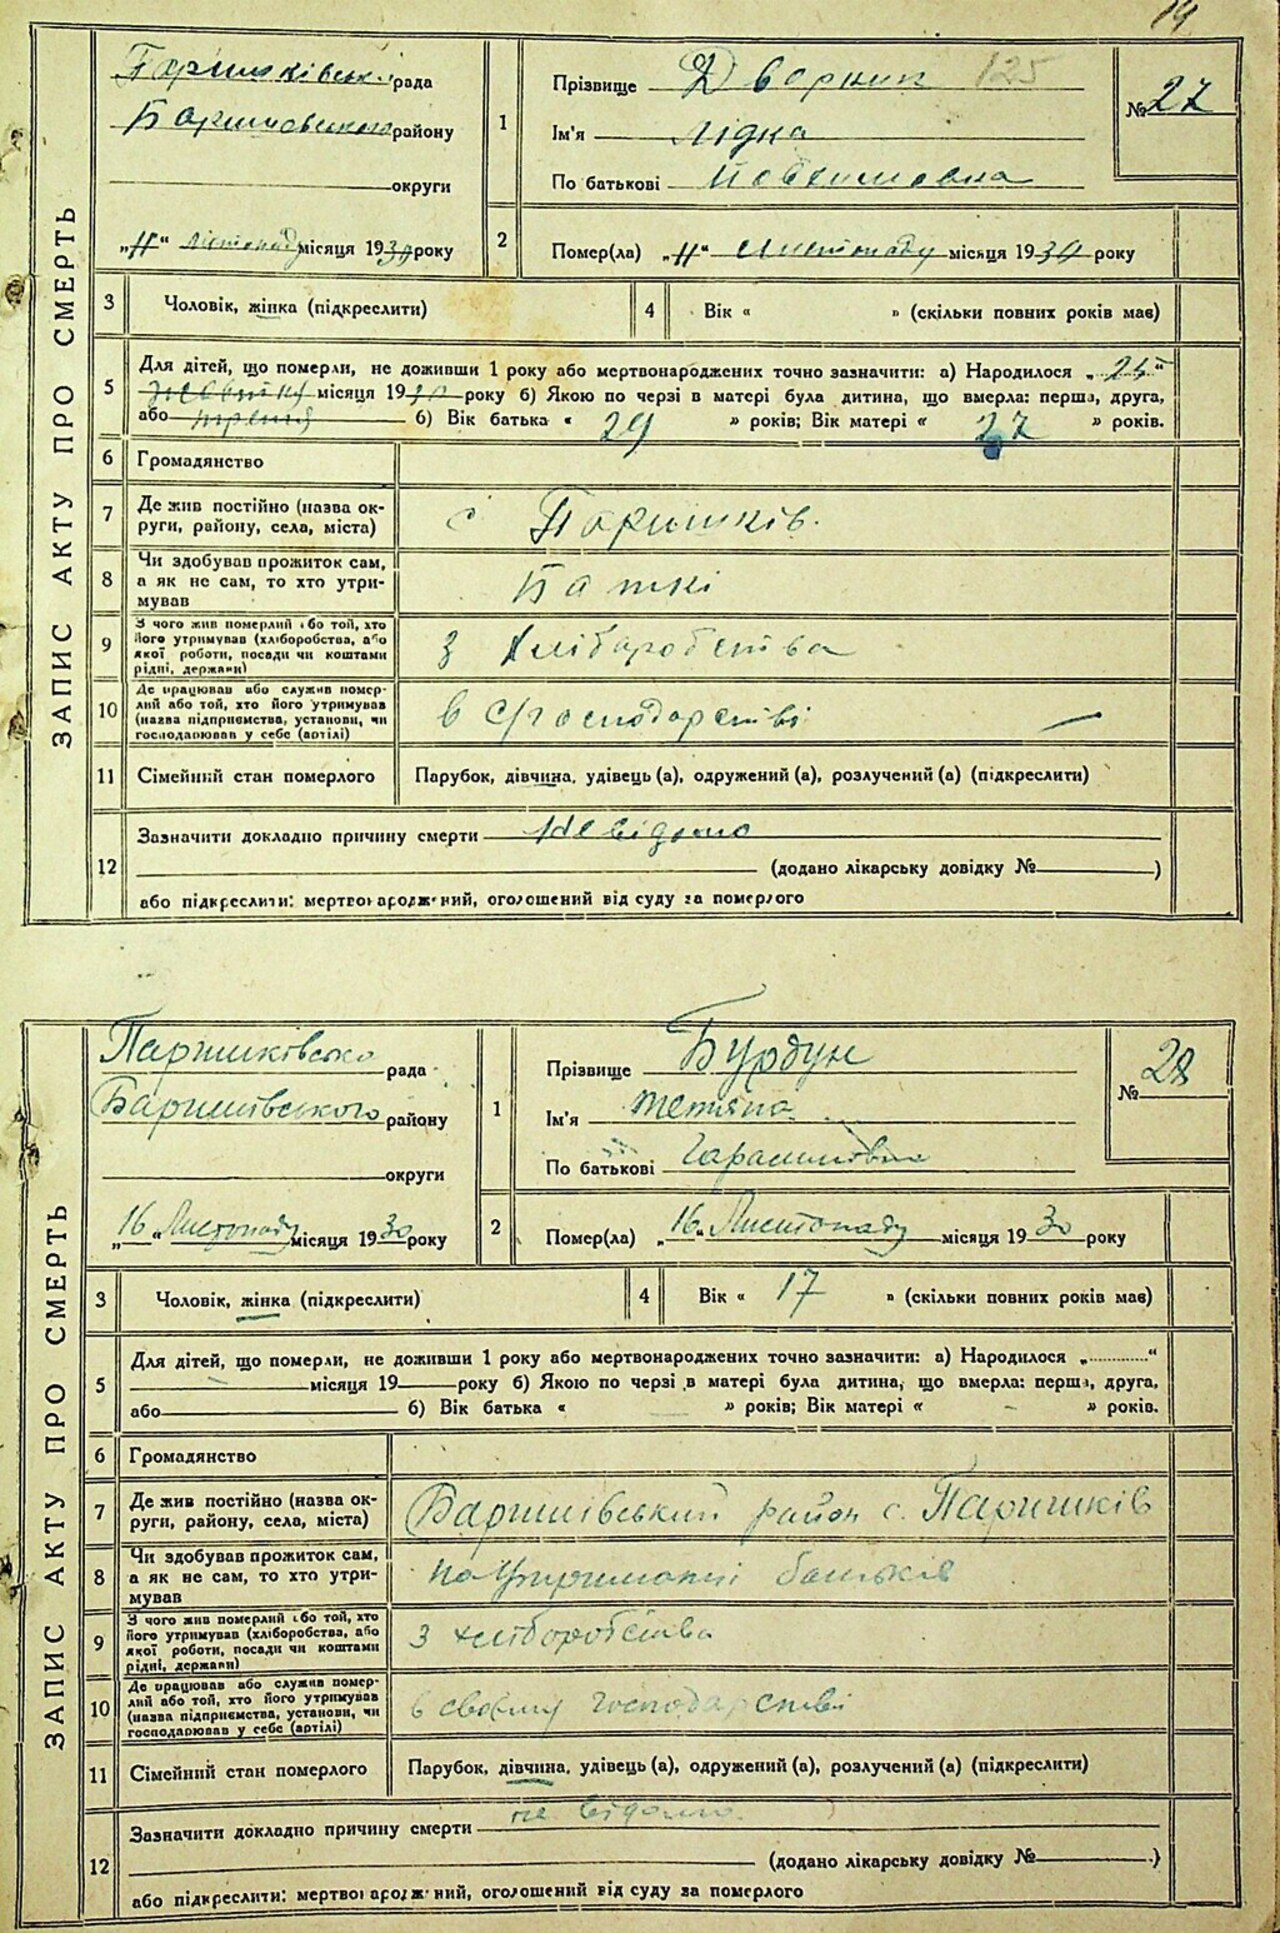 14
ЗАПИС АКТУ ПРО СМЕРТЬ
Паришківськ. рада
Баришовського району
округи
„11“ листопаду місяця 1930 року
1
Прізвище Дворник 125
Ім'я Лідка
По батькові Йовхимовна
№ 27
2
Помер(ла) „11“ листопаду місяця 1930 року
3
Чоловік, жінка (підкреслити)
4
Вік « » (скільки повних років має)
5
Для дітей, що померли, не доживши 1 року або мертвонароджених точно зазначити: а) Народилося „25“
місяця 1930 року б) Якою по черзі в матері була дитина, що вмерла: перша, друга,
або третя б) Вік батька « 29 » років; Вік матері « 27 » років.
6
Громадянство
7
Де жив постійно (назва округи, району, села, міста)
с Паришків.
8
Чи здобував прожиток сам,
а як не сам, то хто утримував
Баткі
9
З чого жив померлий або той, хто
його утримував (хліборобства, або
якої роботи, посади чи коштами
рідні, держави)
З хлібаробства
10
Де працював або служив померлий або той, хто його утримував
(назва підприємства, установи, чи
господарював у себе (артілі)
в с/господарстві —
11
Сімейний стан померлого
Парубок, дівчина, удівець (а), одружений (а), розлучений (а) (підкреслити)
12
Зазначити докладно причину смерти Невідомо
(додано лікарську довідку № )
або підкреслити: мертвонароджений, оголошений від суду за померлого
ЗАПИС АКТУ ПРО СМЕРТЬ
Паришківська рада
Баришівського району
округи
„16“ Листопаду місяця 1930 року
1
Прізвище Бурдун
Ім'я Тетяна
По батькові Гарасимовна
№ 28
2
Помер(ла) „16“ Листопаду місяця 1930 року
3
Чоловік, жінка (підкреслити)
4
Вік « 17 » (скільки повних років має)
5
Для дітей, що померли, не доживши 1 року або мертвонароджених точно зазначити: а) Народилося „ “
місяця 19 року б) Якою по черзі в матері була дитина, що вмерла: перша, друга,
або б) Вік батька « — » років; Вік матері « - » років.
6
Громадянство
7
Де жив постійно (назва округи, району, села, міста)
Баришівський район с. Паришків
8
Чи здобував прожиток сам,
а як не сам, то хто утримував
на утриманні батьків
9
З чого жив померлий або той, хто
його утримував (хліборобства, або
якої роботи, посади чи коштами
рідні, держави)
З хліборобства
10
Де працював або служив померлий або той, хто його утримував
(назва підприємства, установи, чи
господарював у себе (артілі)
в своєму господарстві
11
Сімейний стан померлого
Парубок, дівчина, удівець (а), одружений (а), розлучений (а) (підкреслити)
12
Зазначити докладно причину смерти не відомо
(додано лікарську довідку № )
або підкреслити: мертвонароджений, оголошений від суду за померлого